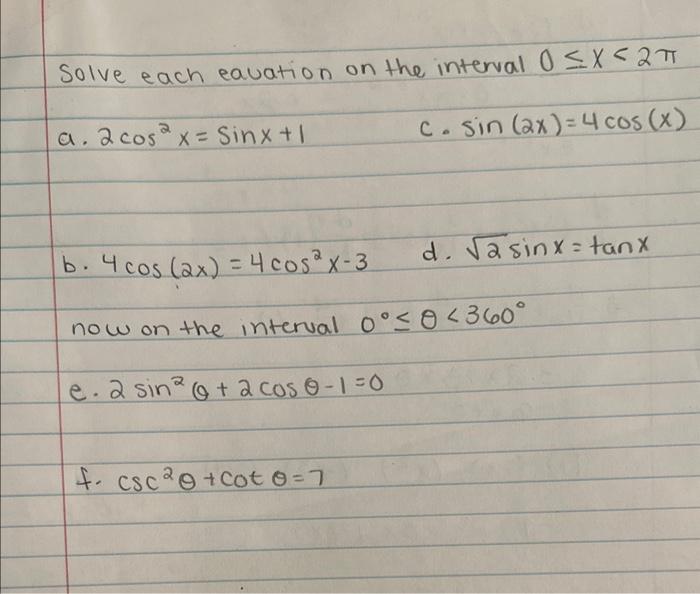 Solve each eauation on the interval 0 ≤ x < 2π
a. 2cos² x = Sinx + 1
c. sin (2x) = 4 cos (x)
b. 4 cos (2x) = 4 cos² x - 3
d. √2 sin x = tan x
now on the interval 0° ≤ θ < 360°
e. 2 sin² θ + 2 cos θ - 1 = 0
f. csc² θ + cot θ = 7